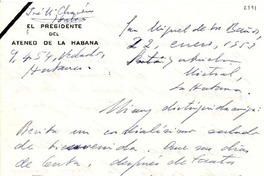 2891
José Mª Chacón
EL PRESIDENTE
DEL
ATENEO DE LA HABANA
9, 454, Vedado,
Habana.
San Miguel de los Baños,
22, enero, 1953
Gabriela
Mistral,
La Habana.
Muy distinguida amiga:
Reciba un cordialísimo saludo
de bienvenida. Que sus días
de Cuba, después de tantos